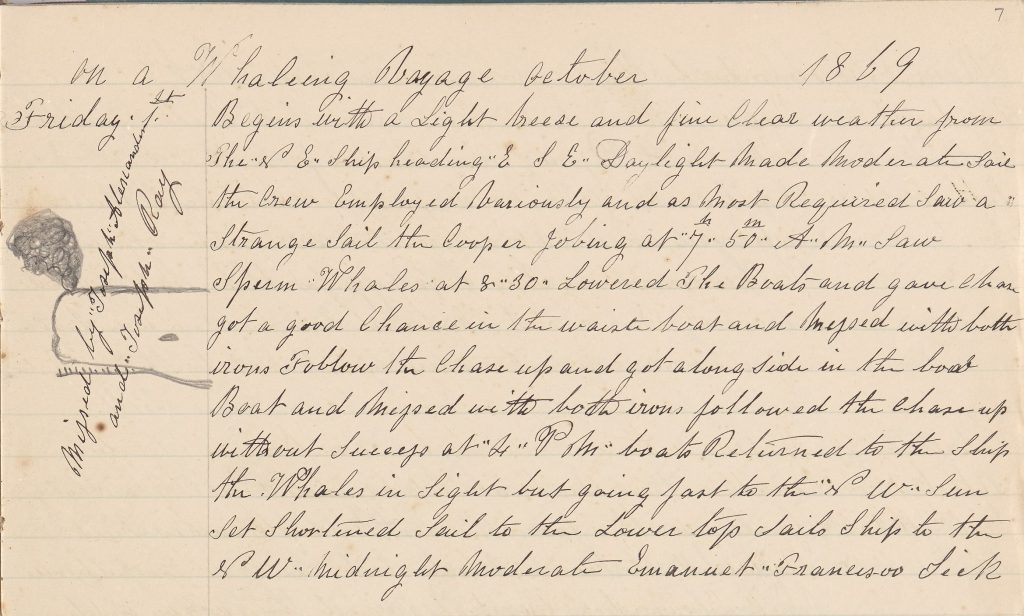 7
on a Whaleing Voyage october 1869
Friday 1st Begins with a Light breese and fine Clear weather from
The "N E" Ship heading "E S E" Daylight Made Moderate Sail
the Crew Employed Variously and as Most Required Saw a "
Strange Sail the Cooper Jobing at "7h 50m" A "M" Saw
Sperm "Whales at 8"30" Lowered The Boats and gave Chase
got a good Chance in the waist boat and Missed with both
irons Follow the Chase up and got along Side in the
Boat and Missed with both irons followed the Chase up
without Success at "4" "P M" boats Returned to the Ship
the Whales in Sight but going fast to the "N W" Sun
Set Shortined Sail to the Lower top Sails Ship to the
N W" Midnight Moderate Emanuel "Francisoo Sick
Missed by "Joseph" Alexander
and "Joseph" Ray